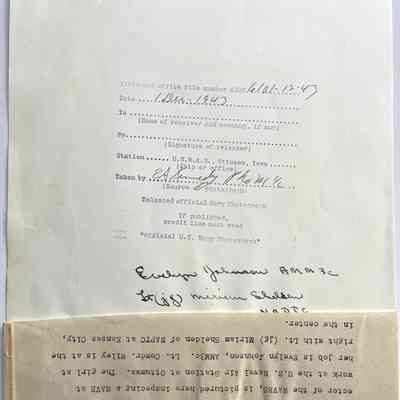 State and office file number 6101-12-43
Date 1 Dec - 1943
To
(Name of receiver and company, if any)
By
(Signature of releaser)
Station U.S.N.A.S., Ottumwa, Iowa
(Ship or office)
Taken by Kennedy PhoM 2c
(Source of photograph)
Enhanced official Navy Photograph
If published,
credit line must read
"Official U.S. Navy Photograph"
Evelyn Johnson AMM3c
Lt (jg) Miriam Sheldon
NAPTC
ector of WAVES, is pictured here inspecting a WAVE at
work at the U.S. Naval Air Station at Ottumwa. The girl at
her job is Evelyn Johnson, AMM3c. Lt. Comdr. Wiley is at the
right with Lt. (jg) Miriam Sheldon of NAPTC at Kansas City,
in the center.